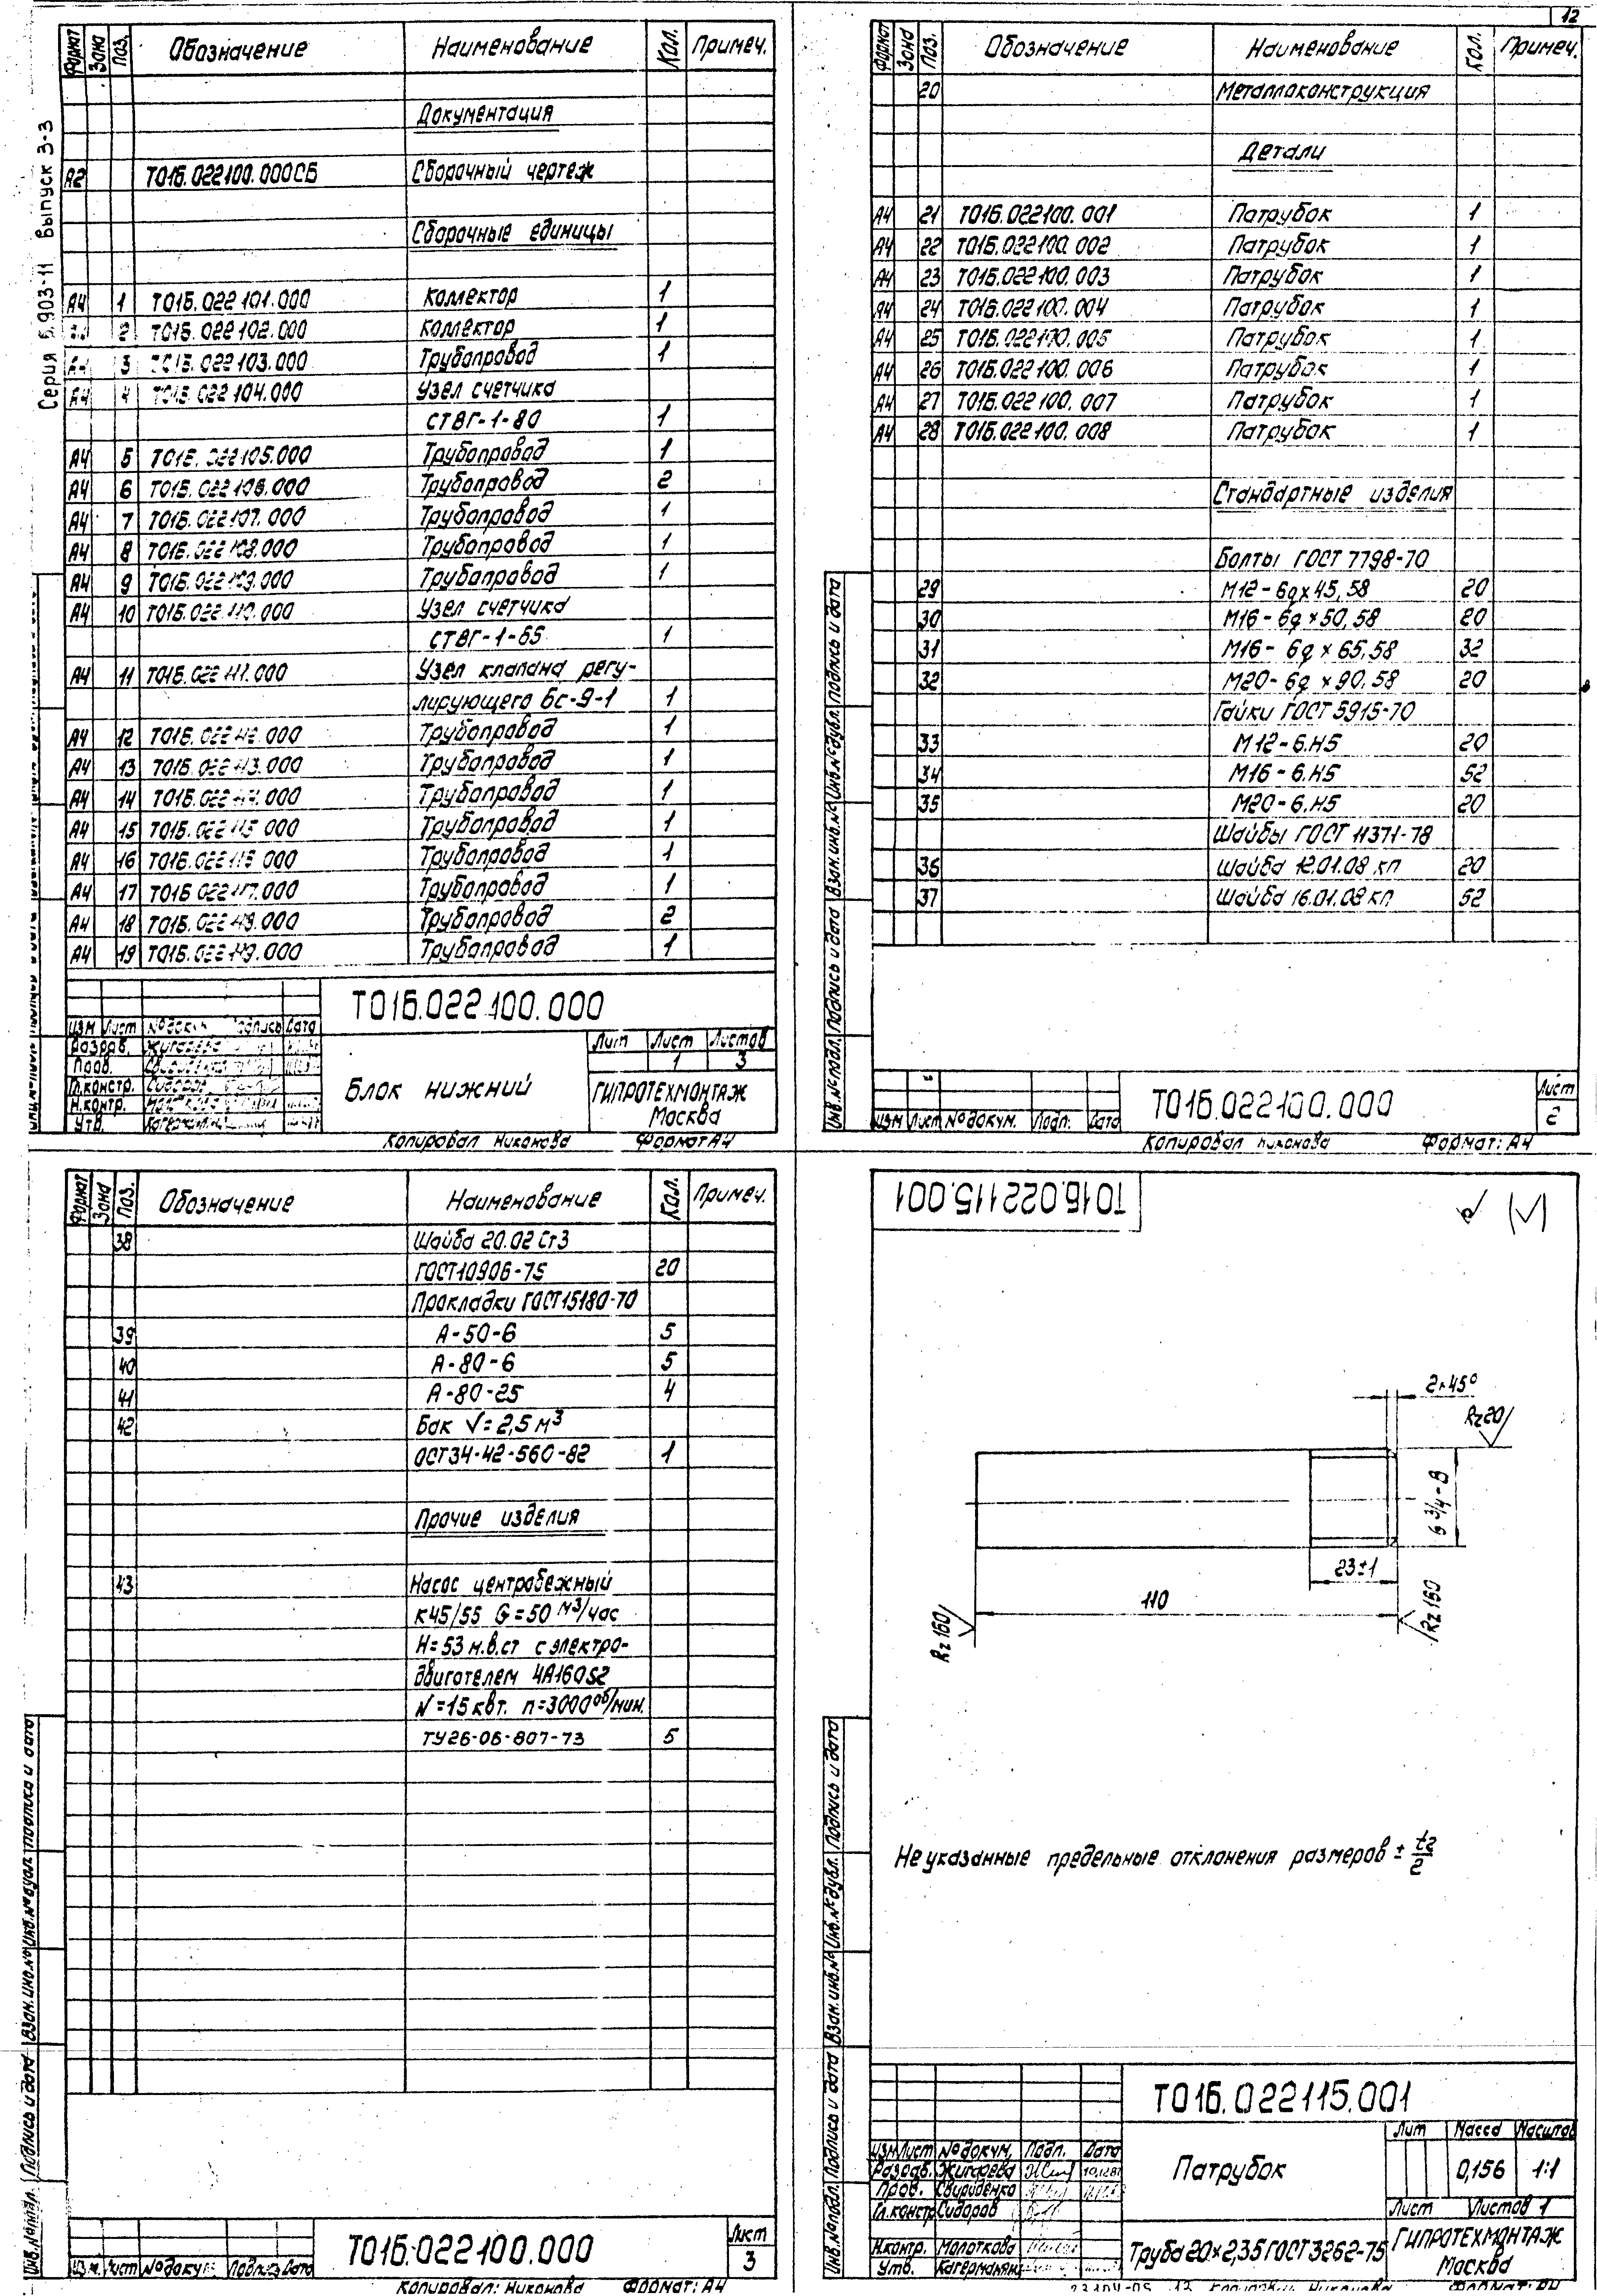 12
Серия 5.903-11 выпуск 3-3
Формат Зона Поз. Обозначение Наименование Кол. Примеч.
Документация
А2 Т01Б.022100.000СБ Сборочный чертеж
Сборочные единицы
А4 1 Т01Б.022101.000 Коллектор 1
2 Т01Б.022102.000 Коллектор 1
А4 3 Т01Б.022103.000 Трубопровод 1
А4 4 Т01Б.022104.000 Узел счетчика
СТВГ-1-80 1
А4 5 Т01Б.022105.000 Трубопровод 1
А4 6 Т01Б.022106.000 Трубопровод 2
А4 7 Т01Б.022107.000 Трубопровод 1
А4 8 Т01Б.022108.000 Трубопровод 1
А4 9 Т01Б.022109.000 Трубопровод 1
А4 10 Т01Б.022110.000 Узел счетчика
СТВГ-1-65 1
А4 11 Т01Б.022111.000 Узел клапана регу-
лирующего 6с-9-1 1
А4 12 Т01Б.022112.000 Трубопровод 1
А4 13 Т01Б.022113.000 Трубопровод 1
А4 14 Т01Б.022114.000 Трубопровод 1
А4 15 Т01Б.022115.000 Трубопровод 1
А4 16 Т01Б.022116.000 Трубопровод 1
А4 17 Т01Б.022117.000 Трубопровод 1
А4 18 Т01Б.022118.000 Трубопровод 2
А4 19 Т01Б.022119.000 Трубопровод 1
Т01Б.022100.000
Изм Лист №докум. Подпись Дата
Разраб. Жигарева
Пров. Свириденко
Гл.констр. Сидоров
Н.контр.
Утв.
Блок нижний
Лит Лист Листов
1 3
ГИПРОТЕХМОНТАЖ
Москва
Копировал Никонова Формат А4
Формат Зона Поз. Обозначение Наименование Кол. Примеч.
20 Металлоконструкция
Детали
А4 21 Т01Б.022100.001 Патрубок 1
А4 22 Т01Б.022100.002 Патрубок 1
А4 23 Т01Б.022100.003 Патрубок 1
А4 24 Т01Б.022100.004 Патрубок 1
А4 25 Т01Б.022100.005 Патрубок 1
А4 26 Т01Б.022100.006 Патрубок 1
А4 27 Т01Б.022100.007 Патрубок 1
А4 28 Т01Б.022100.008 Патрубок 1
Стандартные изделия
Болты ГОСТ 7798-70
29 М12-6g×45,58 20
30 М16-6g×50,58 20
31 М16-6g×65,58 32
32 М20-6g×90,58 20
Гайки ГОСТ 5915-70
33 М12-6.Н5 20
34 М16-6.Н5 52
35 М20-6.Н5 20
Шайбы ГОСТ 11371-78
36 Шайба 12.01.08 кп 20
37 Шайба 16.01.08 кп 52
Инв.№подл. Подпись и дата Взам.инв.№ Инв.№дубл. Подпись и дата
Изм Лист №докум. Подп. Дата
Т01Б.022100.000
Лист
2
Копировал Никонова Формат: А4
Формат Зона Поз. Обозначение Наименование Кол. Примеч.
38 Шайба 20.02 Ст3
ГОСТ10906-75 20
Прокладки ГОСТ15180-70
39 А-50-6 5
40 А-80-6 5
41 А-80-25 4
42 Бак V=2,5 м³
ОСТ34-42-560-82 1
Прочие изделия
43 Насос центробежный
К45/55 G=50 м³/час
Н=53 м.в.ст с электро-
двигателем 4А160S2
N=15 квт. n=3000 об/мин.
ТУ26-06-807-73 5
Инв.№подл. Подпись и дата Взам.инв.№ Инв.№дубл. Подпись и дата
Изм. Лист №докум. Подпись Дата
Т01Б.022100.000
Лист
3
Копировал: Никонова Формат: А4
Т01Б.022115.001
2×45°
Rz20
G 3/4-В
23±1
110
Rz160
Rz160
Неуказанные предельные отклонения размеров ± t2/2
Инв.№подл. Подпись и дата Взам.инв.№ Инв.№дубл. Подпись и дата
Т01Б.022115.001
Изм Лист №докум. Подп. Дата
Разраб. Жигарева
Пров. Свириденко
Гл.констр Сидоров
Н.контр. Молоткова
Утв.
Патрубок
Лит Масса Масштаб
0,156 1:1
Лист Листов 1
Труба 20×2,35 ГОСТ 3262-75
ГИПРОТЕХМОНТАЖ
Москва